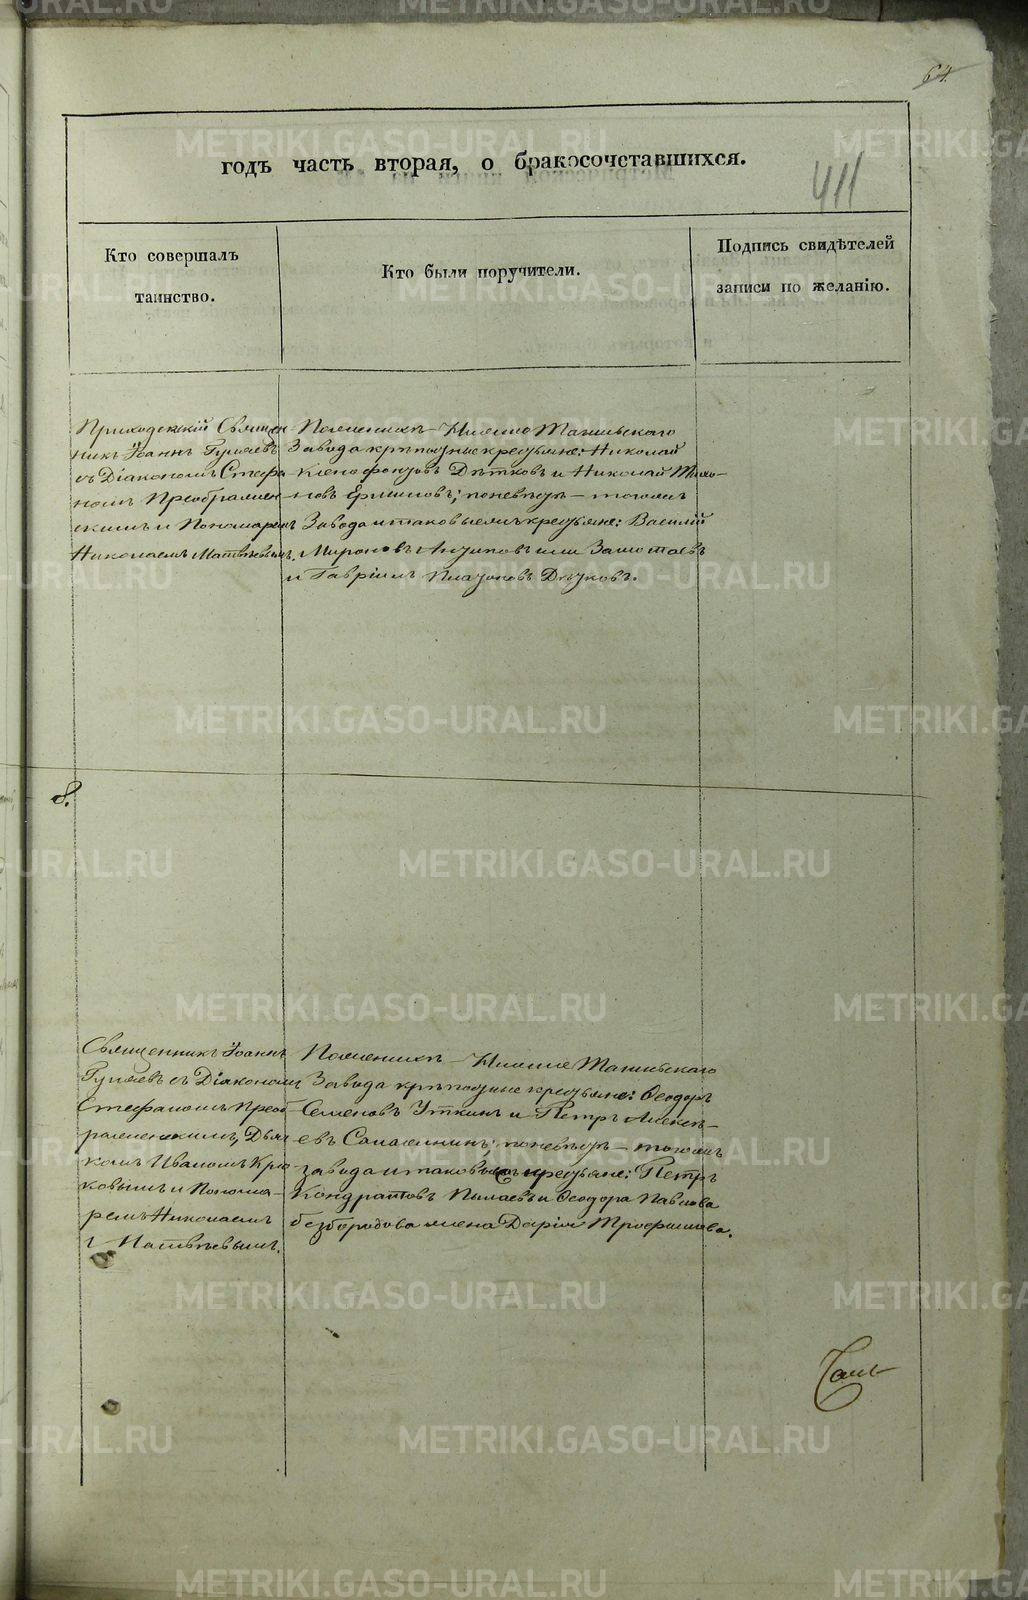 64.
годъ часть вторая, о бракосочетавшихся.
411
Кто совершалъ
таинство.
Кто были поручители.
Подпись свидѣтелей
записи по желанію.
Приходскій Священ-
никъ Іоаннъ Гуляевъ
съ Діакономъ Стефа-
номъ Преображен-
скимъ и Пономаремъ
Николаемъ Матвѣевымъ.
По женихѣ – Нижне Тагильскаго
Завода крѣпостные крестьяне: Николай
Ксенофонтовъ Дѣтковъ и Николай
Ермиловъ; по невѣстѣ – тогожъ
Завода и таковые жъ крестьяне: Василій
Мироновъ Антиповъ или
и Гавріилъ Платоновъ
Священникъ Іоаннъ
Гуляевъ съ Діакономъ
Стефаномъ Преоб-
раженскимъ, Дьяч-
комъ Иваномъ Крю-
ковымъ и Понома-
ремъ Николаемъ
Матвѣевымъ.
По женихѣ – Нижне Тагильскаго
Завода крѣпостные крестьяне: Ѳеодоръ
Семеновъ Уткинъ и Петръ Алексѣ-
евъ по невѣстѣ – тогожъ
завода и таковые жъ крестьяне: Петръ
Кондратовъ и Ѳеодора Павлова
безбородова жена Дарія Трофимова.
METRIKI.GASO-URAL.RU